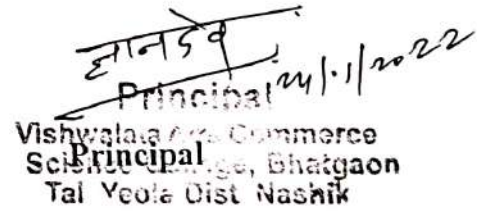 ज्ञानदेव
24/01/2022
Principal
Vishwalata Arts Commerce
Science College, Bhatgaon
Principal
Tal Yeola Dist Nashik